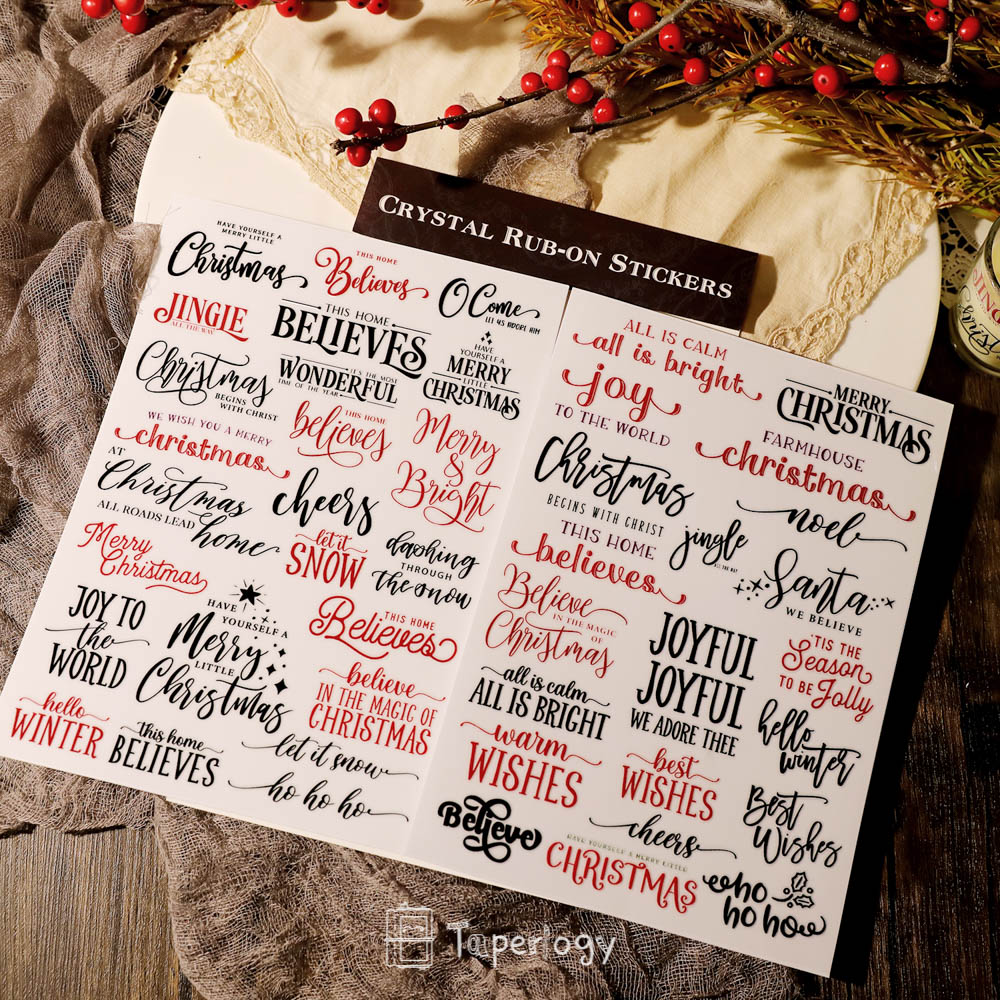 CRYSTAL RUB-ON STICKERS
HAVE YOURSELF A
MERRY LITTLE
Christmas
THIS HOME
Believes
O Come
LET US ADORE HIM
JINGLE
ALL THE WAY
THIS HOME
BELIEVES
HAVE
YOURSELF A
MERRY
LITTLE
CHRISTMAS
Christmas
BEGINS
WITH CHRIST
IT'S THE MOST
WONDERFUL
TIME OF THE YEAR
WE WISH YOU A MERRY
christmas
THIS HOME
believes
Merry
&
Bright
AT
Christmas
ALL ROADS LEAD
home
cheers
Merry
Christmas
let it
SNOW
dashing
THROUGH
the snow
JOY TO
the
WORLD
HAVE
YOURSELF A
Merry
LITTLE
Christmas
THIS HOME
Believes
believe
IN THE MAGIC OF
CHRISTMAS
hello
WINTER
this home
BELIEVES
let it snow
ho ho ho
ALL IS CALM
all is bright
MERRY
CHRISTMAS
joy
TO THE WORLD
FARMHOUSE
christmas
Christmas
BEGINS WITH CHRIST
jingle
ALL THE WAY
noel
THIS HOME
believes
Santa
WE BELIEVE
Believe
IN THE MAGIC
OF
Christmas
JOYFUL
JOYFUL
WE ADORE THEE
'TIS THE
Season
TO BE
Jolly
all is calm
ALL IS BRIGHT
hello
winter
warm
WISHES
best
WISHES
Best
Wishes
Believe
cheers
HAVE YOURSELF A MERRY LITTLE
CHRISTMAS
ho
ho ho
Taperlogy